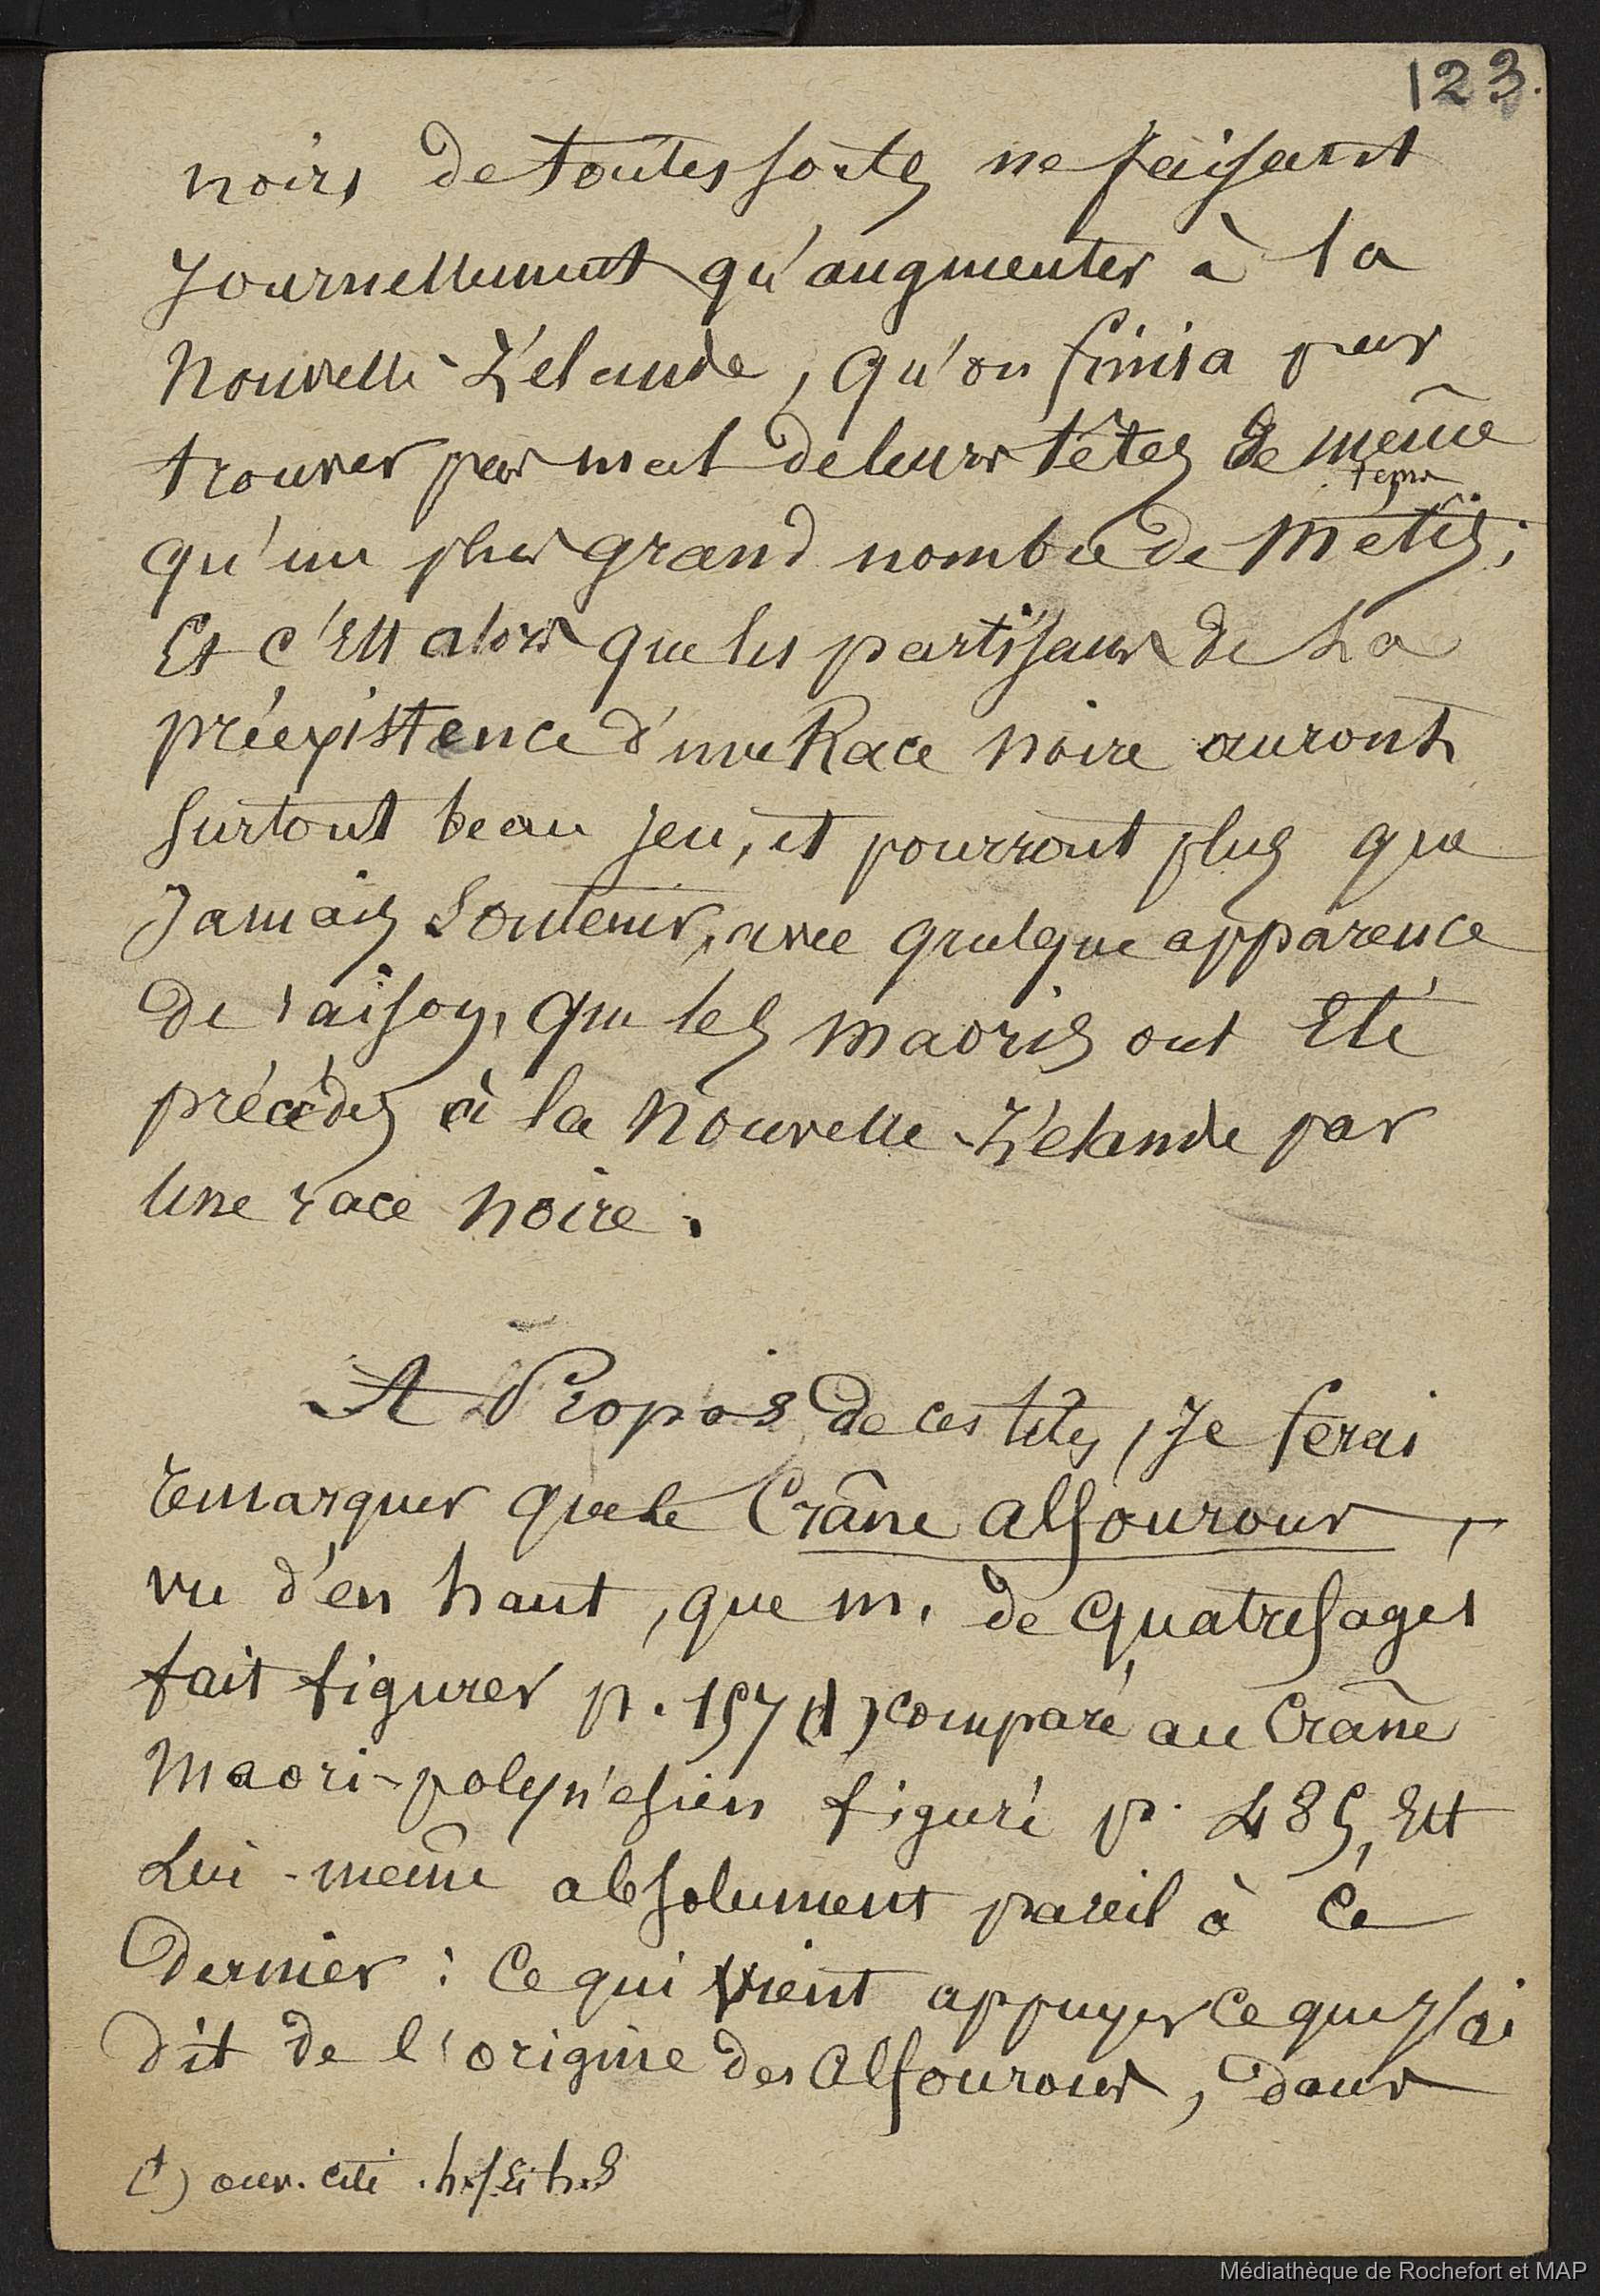 123.
noirs de toutes sortes ne faisant
Journellement qu'augmenter à la
Nouvelle-Zélande, qu'on finira par
trouver pas mal de leurs têtes de même
qu'un plus grand nombre de Métis;
Et c'Est alors que les partisans de La
préexistence d'une Race Noire auront
Surtout beau jeu, et pourront plus que
Jamais Soutenir, avec quelque apparence
De raison, que les Maoris ont Eté
précédés à la Nouvelle-Zélande par
Une race Noire.
A Propos de ces têtes, Je ferai
remarquer que le Crâne alfourous,
vu d'en haut, que M. de Quatrefages
fait figurer p. 157 (1) comparé au Crâne
Maori-polynésien figuré p. 485, Est
Lui-même absolument pareil à Ce
Dernier: Ce qui vient appuyer Ce que J'ai
Dit de l'origine des Alfourous, Dans
(1) ouv. cité
Médiathèque de Rochefort et MAP